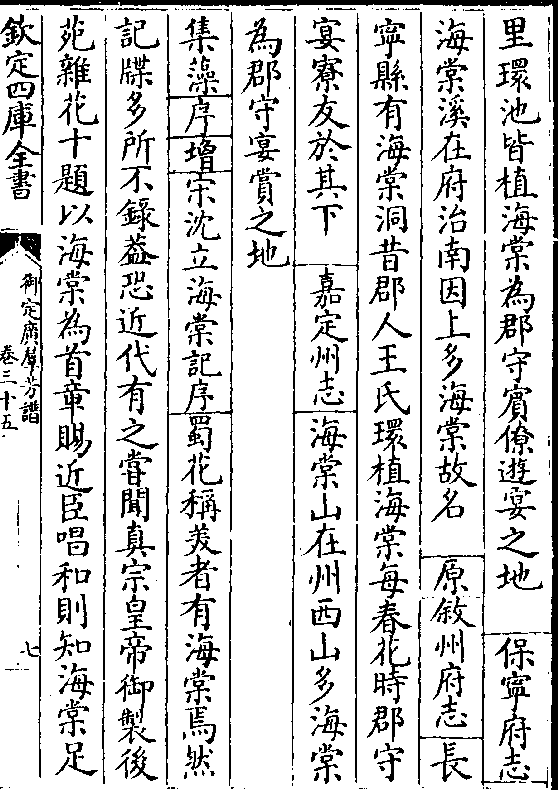 里環池皆植海棠為郡守賓僚遊宴之地　保寧府志
海棠溪在府治南因上多海棠故名　原敘州府志　長
寧縣有海棠洞昔郡人王氏環植海棠每春花時郡守
宴寮友於其下　嘉定州志　海棠山在州西山多海棠
為郡守宴賞之地
集藻序增宋沈立海棠記序蜀花稱美者有海棠焉然
記牒多所不錄葢恐近代有之嘗聞真宗皇帝御製後
苑雜花十題以海棠為首章賜近臣唱和則知海棠足
欽定四庫全書
御定廣羣芳譜
卷三十五
七